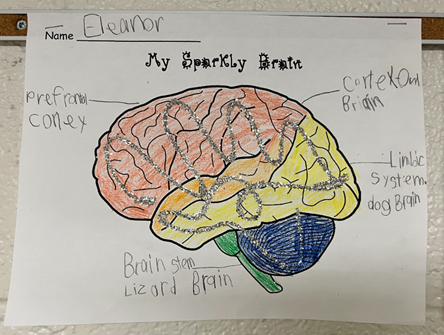 Name Eleanor
My Sparkly Brain
Prefrontal
conex
cortex Owl
Briain
Limbic
system
dog Brain
Brain stem
Lizard Brain